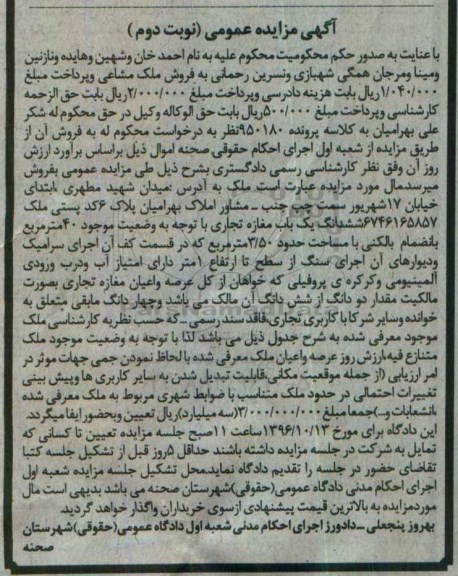 آگهی مزایده عمومی (نوبت دوم )
با عنایت به صدور حکم محکومیت محکوم علیه به نام احمد خان وشهین وهایده ونازنین
ومینا ومرجان همگی شهبازی ونسرین رحمانی به فروش ملک مشاعی وپرداخت مبلغ
۱/۰۴۰/۰۰۰ریال بابت هزینه دادرسی وپرداخت مبلغ ۲/۰۰۰/۰۰۰ریال بابت حق الزحمه
کارشناسی وپرداخت مبلغ ۵۰۰/۰۰۰ریال بابت حق الوکاله وکیل در حق محکوم له شکر
علی بهرامیان به کلاسه پرونده ۹۵۰۱۸۰نظر به درخواست محکوم له به فروش آن از
طریق مزایده از شعبه اول اجرای احکام حقوقی صحنه اموال ذیل براساس برآورد ارزش
روز آن وفق نظر کارشناسی رسمی دادگستری بشرح ذیل طی مزایده عمومی بفروش
میرسدمال مورد مزایده عبارت است ملک به آدرس :میدان شهید مطهری ،ابتدای
خیابان ۱۷شهریور سمت چپ جنب ــ مشاور املاک بهرامیان پلاک ۶کد پستی ملک
۶۷۴۶۱۶۵۸۵۷ششدانگ یک باب مغازه تجاری با توجه به وضعیت موجود ۴۰مترمربع
بانضمام بالکنی با مساحت حدود ۳/۵۰مترمربع که در قسمت کف آن اجرای سرامیک
ودیوارهای آن اجرای سنگ از سطح تا ارتفاع ۱متر دارای امتیاز آب ودرب ورودی
آلمینیومی وکرکره ی پروفیلی که خواهان از کل عرصه واعیان مغازه تجاری بصورت
مالکیت مقدار دو دانگ از شش دانگ آن مالک می باشد وچهار دانگ مابقی متعلق به
خوانده وسایر شرکا با کاربری تجاری،فاقد سند رسمی ــ که حسب نظریه کارشناسی ملک
موجود معرفی شده به شرح جدول ذیل می باشد لذا با توجه به وضعیت موجود ملک
متنازع فیه،ارزش روز عرصه واعیان ملک معرفی شده با لحاظ نمودن جمی جهات موثر در
امر ارزیابی (از جمله موقعیت مکانی،قابلیت تبدیل شدن به سایر کاربری ها وپیش بینی
تغییرات احتمالی در حدود ملک متناسب با ضوابط شهری مربوط به ملک معرفی شده
،انشعابات و...)جمعا مبلغ ۳/۰۰۰/۰۰۰/۰۰۰(سه میلیارد)ریال تعیین وبحضور ایفا میگردد.
این دادگاه برای مورخ ۱۳۹۶/۱۰/۱۳ساعت ۱۱صبح جلسه مزایده تعیین تا کسانی که
تمایل به شرکت در جلسه مزایده داشته باشند حداقل ۵روز قبل از تشکیل جلسه کتبا
تقاضای حضور در جلسه را تقدیم دادگاه نماید،محل تشکیل جلسه مزایده شعبه اول
اجرای احکام مدنی دادگاه عمومی(حقوقی)شهرستان صحنه می باشد بدیهی است مال
موردمزایده به بالاترین قیمت پیشنهادی ازسوی خریداران واگذار خواهد گردید.
بهروز پنجعلی ــ دادورز اجرای احکام مدنی شعبه اول دادگاه عمومی(حقوقی)شهرستان
صحنه